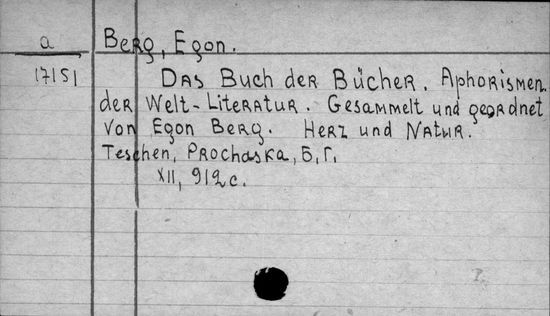 a
Berg, Egon.
17151
Das Buch der Bücher. Aphorismen
der Welt-Literatur. Gesammelt und geordnet
von Egon Berg. Herz und Natur.
Teschen, Prochaska, Б,Г,
XII, 912 c.